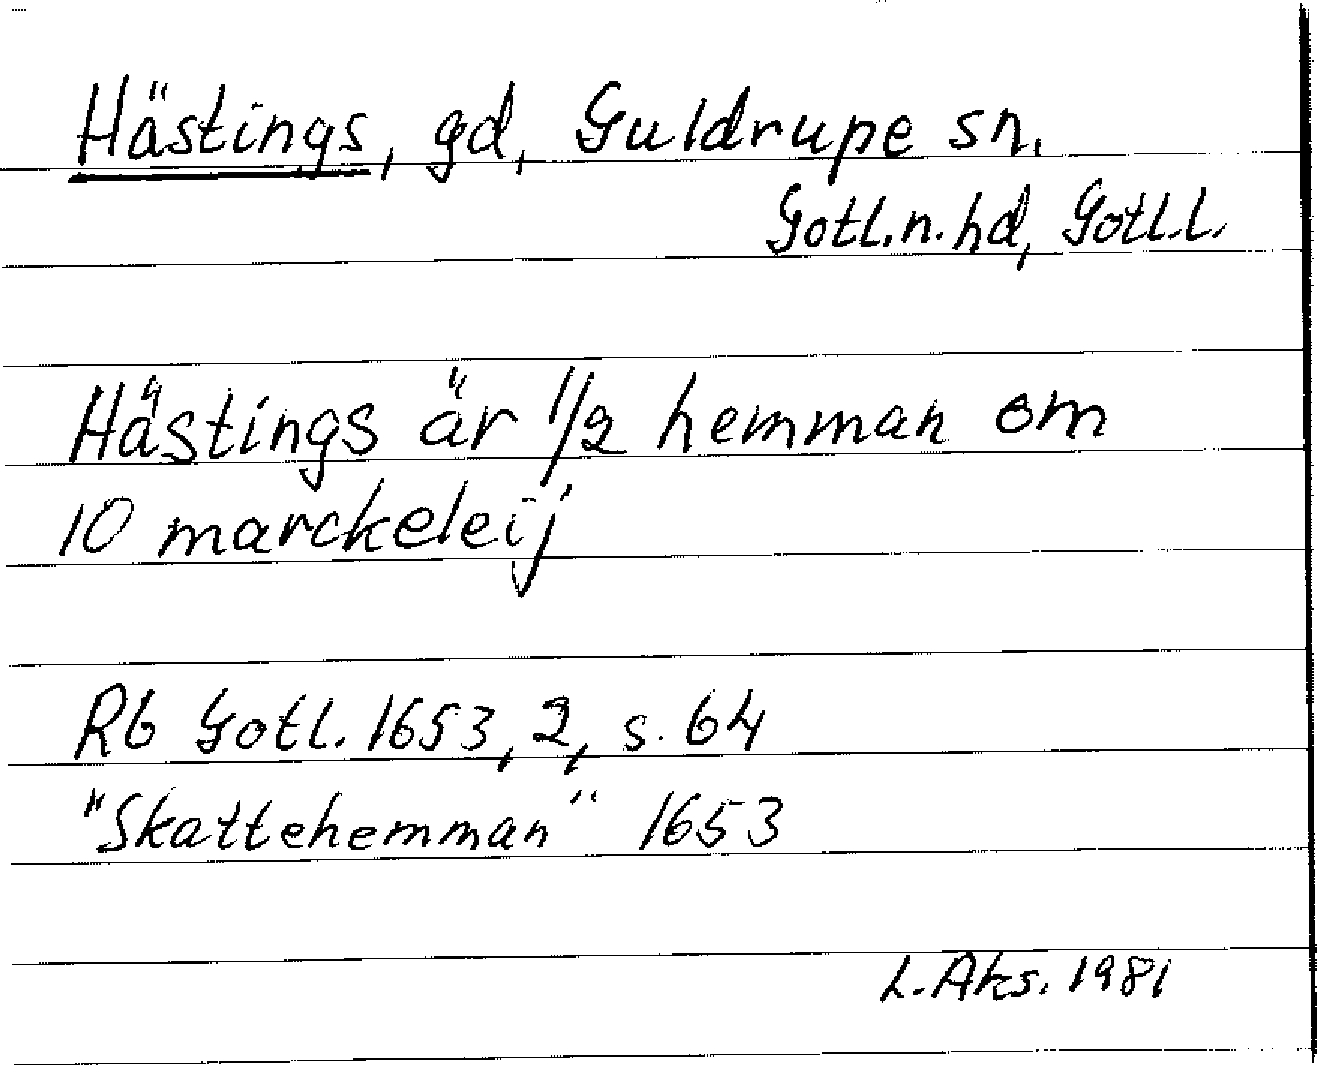 Hästings, gd, Guldrupe sn.
Gotl.n.hd, Gotl.l.
Hästings är 1/2 hemman om
10 marckeleij
Rb Gotl. 1653, 2, s. 64
"Skattehemman" 1653
L. Aks. 1981